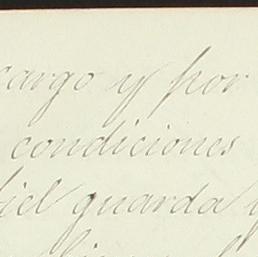 cargo y por
condiciones
fiel guarda y